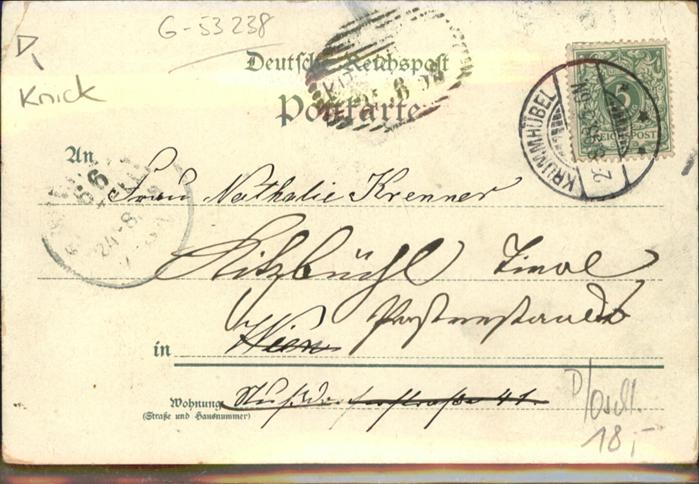 G-53238
D,
Knick
Deutsche Reichspost
Postkarte
5
REICHSPOST
KRUMMHÜBEL
An
66
24.8
Frau Nathalie Krenner
Kitzbüchl Tirol
Wien Postrestande
in
Wohnung Nußdorferstraße 41.
(Straße und Hausnummer)
D/Oscht.
18,-